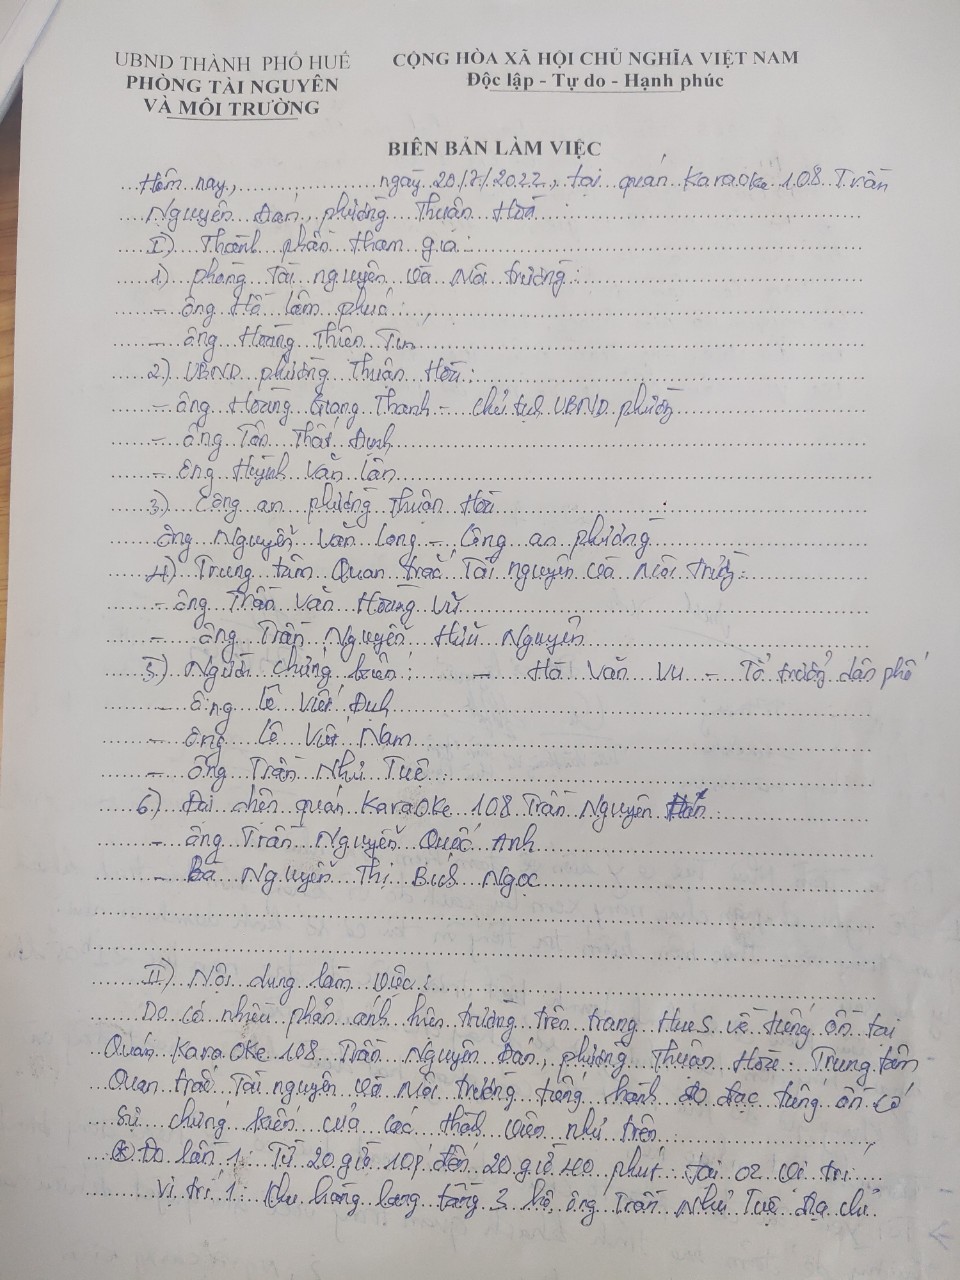 UBND THÀNH PHỐ HUẾ
PHÒNG TÀI NGUYÊN
VÀ MÔI TRƯỜNG
CỘNG HÒA XÃ HỘI CHỦ NGHĨA VIỆT NAM
Độc lập - Tự do - Hạnh phúc
BIÊN BẢN LÀM VIỆC
Hôm nay, ngày 20/7/2022, tại quán Karaoke 108 Trần
Nguyên Đán, phường Thuận Hoà :
I) Thành phần tham gia:
1) phòng Tài nguyên và Môi trường:
- ông Hồ Lâm phúc :
- ông Hoàng Thiên
2) UBND phường Thuận Hoà:
- ông Hoàng Trọng Thanh - chủ tịch UBND phường
- ông Tôn Thất Định
- ông Huỳnh Văn Lân
3) Công an phường Thuận Hoà :
ông Nguyễn Văn Long - Công an phường
4) Trung tâm Quan trắc Tài nguyên và Môi trường:
- ông Trần Văn Hoàng Vũ
- ông Trần Nguyễn Hữu Nguyên
5) Người chứng kiến : - Hà Văn Vu - Tổ trưởng dân phố
- ông Lê Viết Định
- ông Lê Viết Nam
- ông Trần Như Tuệ
6) Đại diện quán Karaoke 108 Trần Nguyên Đán:
- ông Trần Nguyễn Quốc Anh
- Bà Nguyễn Thị Bích Ngọc
II) Nội dung làm việc :
Do có nhiều phản ánh hiện trường trên trang HueS về tiếng ồn tại
Quán Karaoke 108 Trần Nguyên Đán, phường Thuận Hoà. Trung tâm
Quan trắc Tài nguyên và Môi trường tiến hành đo đạc tiếng ồn có
sự chứng kiến của các thành viên như trên.
* Đo lần 1: Từ 20 giờ 10p đến 20 giờ 40 phút tại 02 vị trí
Vị trí 1: Khu hàng lang tầng 3 hộ ông Trần Như Tuệ địa chỉ